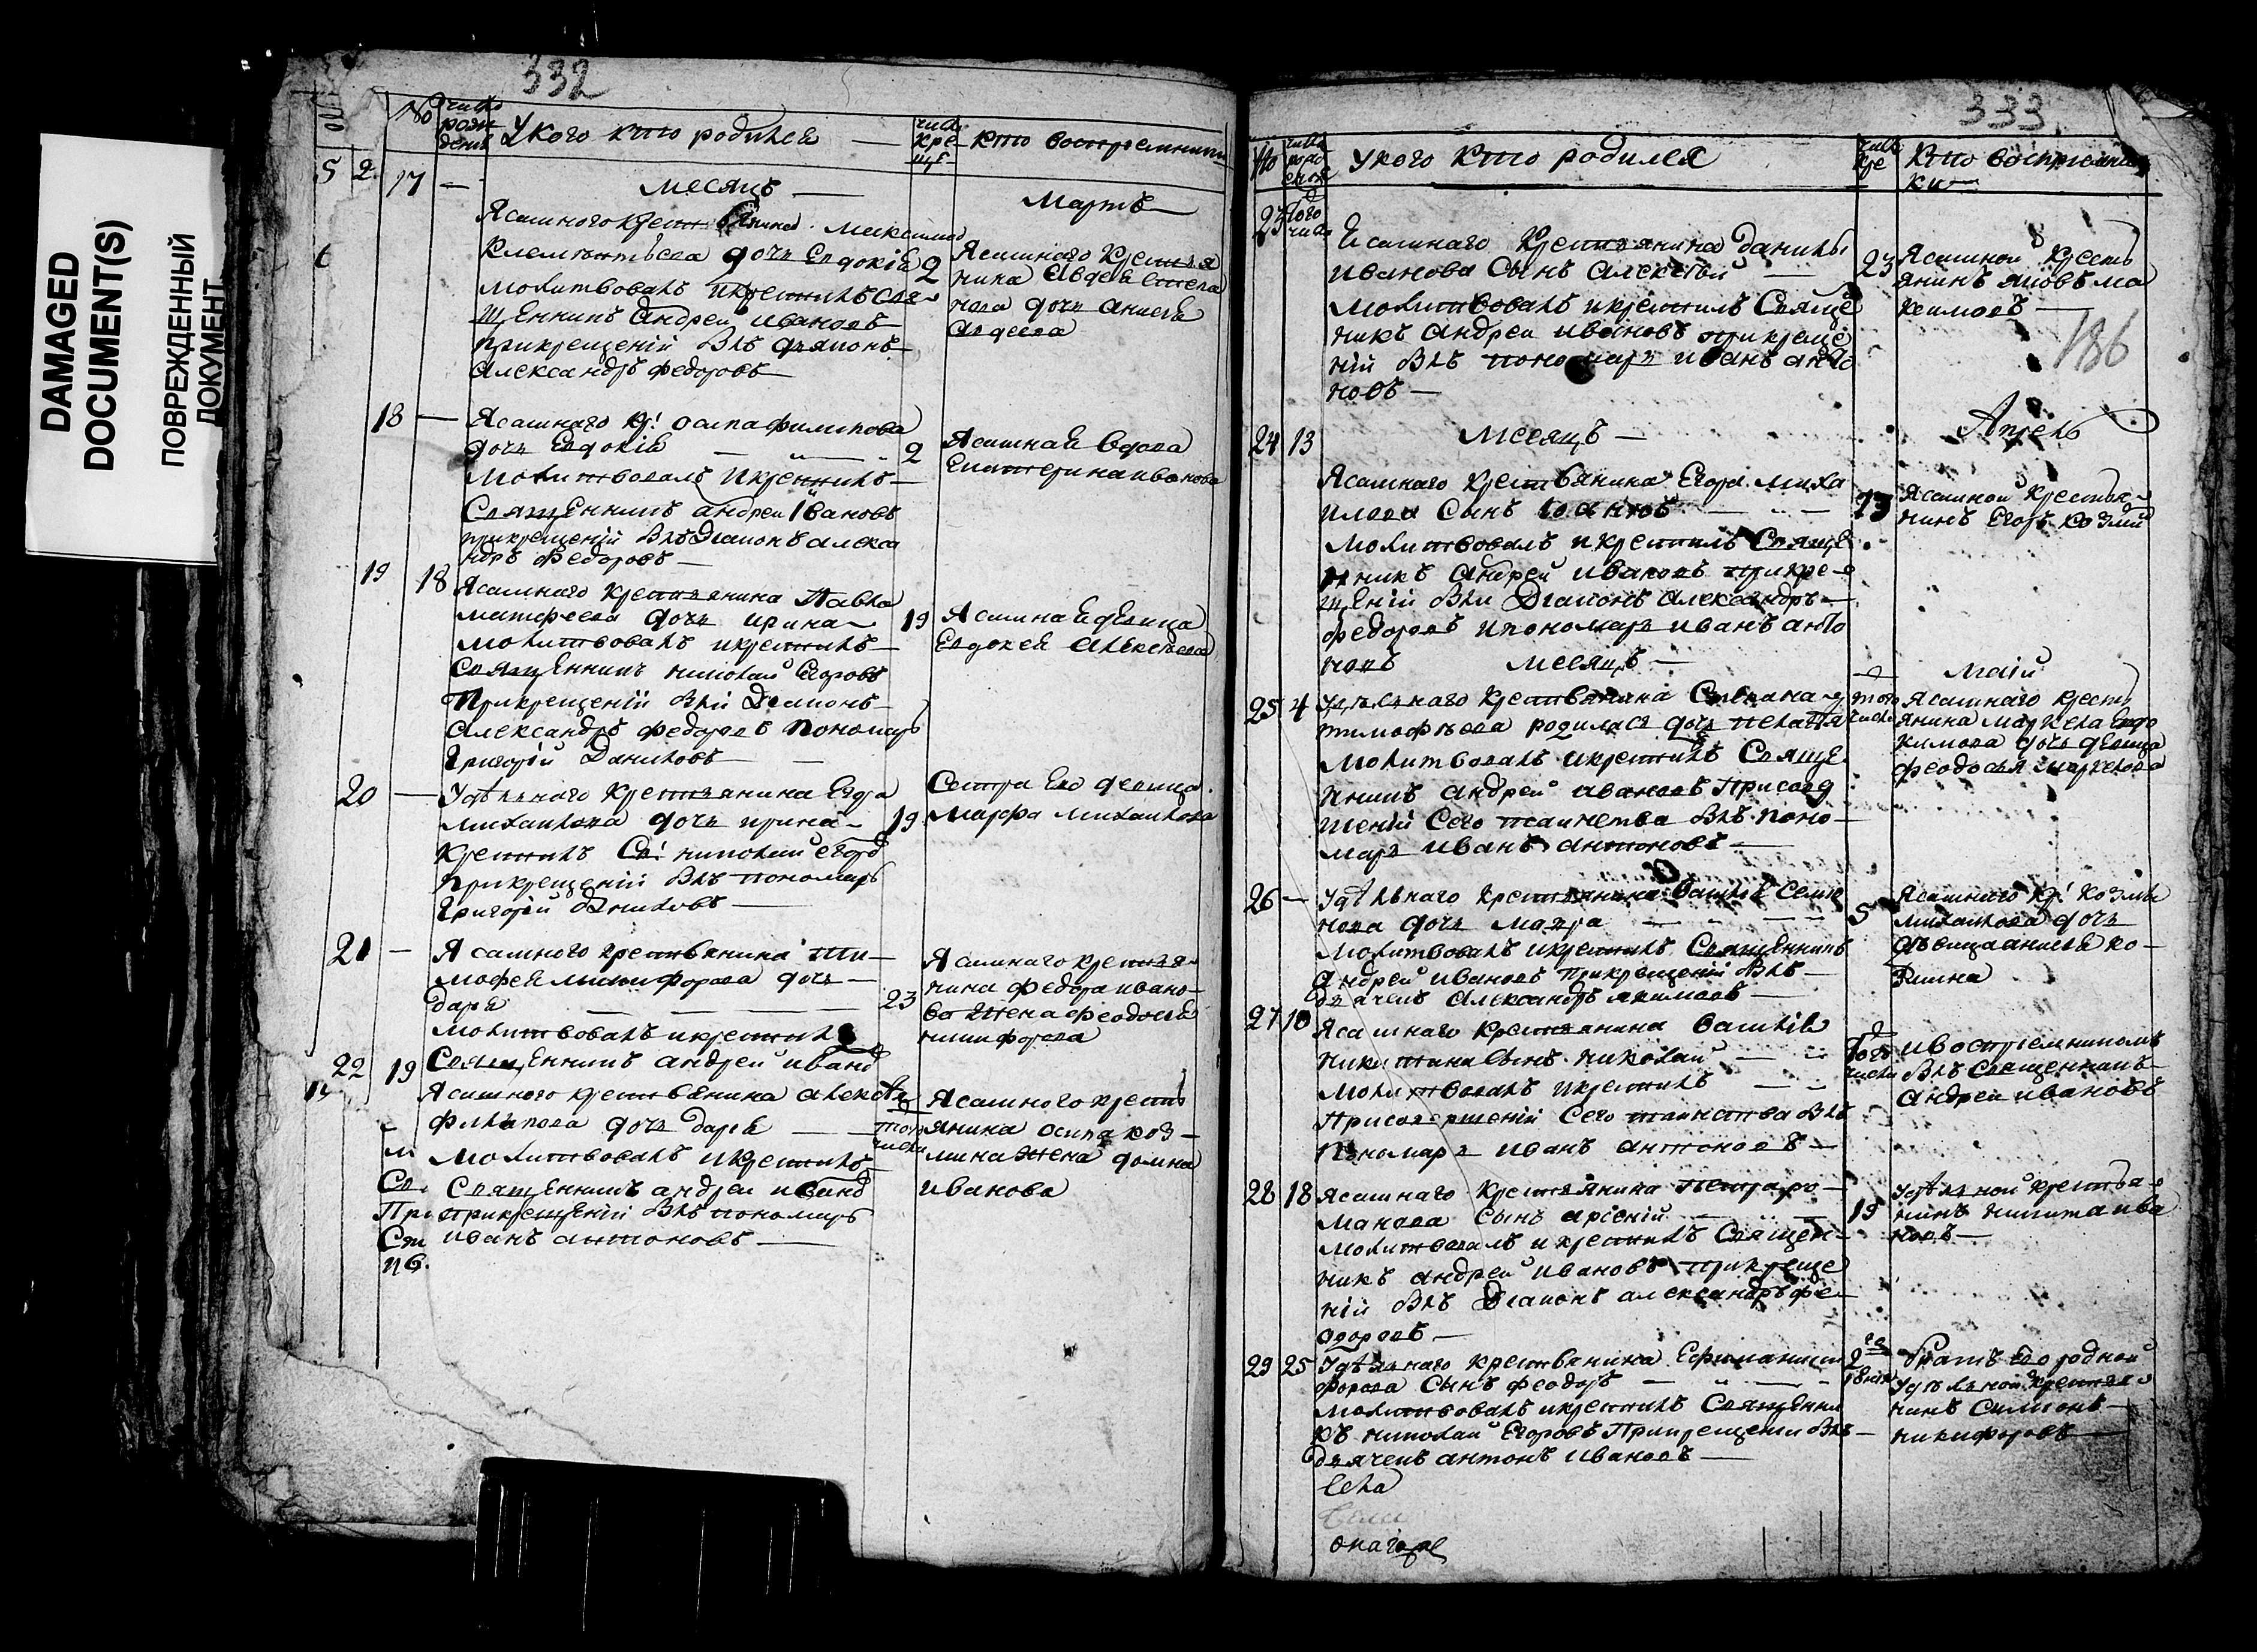 DAMAGED
DOCUMENT(S)
ПОВРЕЖДЕННЫЙ
ДОКУМЕНТ
332
No число рожденія У кого кто родился число креще кто восприемники
5 2
17 — месяцъ — Мартъ
Ясашного крестьянина Максима
Клементьева дочь Евдокія 2
молитвовалъ и крестилъ свя
щенникъ Андрей Ивановъ
прикрещеній былъ дьяконъ
Александръ Федоровъ
Ясашнаго крестья
нина Авдея Степа
нова дочь Анисья
Авдеева
18 — Ясашнаго кр: Осипа Филипова
дочь Евдокія 2
молитвовалъ и крестилъ
Священникъ Андреи Ивановъ
прикрещеній былъ Діаконъ Алекса
ндръ Федоровъ
Ясашная вдова
Екатерина Иванова
19 18 Ясашнаго крестьянина Павла
Матфеева дочь Ирина 19
молитвовалъ и крестилъ
Священникъ Николай Егоровъ
Прикрещеній были Діаконъ
Александръ Федоровъ пономарь
Григорій Даниловъ
Ясашная девица
Евдокея Алексеева
20 — Удѣльного крестьянина Егора
Михаилова дочь Ирина 19
крестилъ Св: Николай Егоро
прикрещеній былъ пономарь
Григорей Даниловъ
Сестра Его девица
Марфа Михаилова
21 — Ясашного крестьянина Ти
мофея Никифорова дочь
Дарья 23
молитвовалъ и крестилъ
Священникъ Андреи Ивано
Ясашнаго крестья
нина Федора Ивано
ва жена Феодосія
Никифорова
22 19 Ясашного крестьянина Алексея
Филипова дочь Дарья того числа
молитвовалъ и крестилъ
Священникъ Андреи Ивано
прикрещеній былъ пономарь
Иванъ Антоновъ
Ясашного кресть
янина Осипа Коз
мина жена Домна
Иванова
333
No число рожд У кого кто родился число кре Кто восприемни
ки
23 того числа
Ясашнаго Крестьянина Данилы
Иванова Сынъ Алексѣй 23
молитвовалъ и крестилъ Священ
никъ Андреи Ивановъ прикреще
ній былъ пономарь Иванъ Анто
новъ
Ясашной кресть
янинъ Яковъ Ма
ксимовъ
186
24 13 Месяцъ — Апрель
Ясашнаго крестьянина Егора Миха
илова Сынъ Іоаннъ 13
молитвовалъ и крестилъ Священ
никъ Андреи Ивановъ прикре
щеніи были Діаконъ Александръ
Федоровъ и пономарь Иванъ Анто
новъ
Ясашнои крестья
нинъ Егоръ Козмин
Месяцъ — Маій
25 4 Удѣльнаго крестьянина Степана
Тимофѣева родилась дочь Пелагія того числа
молитвовалъ и крестилъ Священ
никъ Андреи Ивановъ Присовер
шеніи Сего таинства былъ Поно
марь Иванъ Антоновъ
Ясашнаго кресть
янина Маркела Евдо
кимова дочь девица
Феодосья Маркелова
26 — Удѣльнаго крестьянина Василья Семе
нова дочь Мавра 5
молитвовалъ и крестилъ Священникъ
Андреи Ивановъ прикрещеніи былъ
дьячекъ Александръ Якимовъ
Ясашнаго кр: Козмы
Михаилова дочь
дѣвица Анисья Ко
змина
27 10 Ясашнаго крестьянина Василія
Никитина Сынъ Николаи того числа
молитвовалъ и крестилъ
Присовершеніи Сего таинства былъ
Пономарь Иванъ Антоновъ
И восприемникомъ
былъ Священникъ
Андреи Ивановъ
28 18 Ясашнаго крестьянина Петра Ро
манова Сынъ Арсеній 19
молитвовалъ и крестилъ Священ
никъ Андреи Ивановъ прикреще
ніи былъ Діаконъ Александръ Фе
одоровъ
Удѣльной крестья
нинъ Никита Ива
новъ
29 25 Удѣльнаго крестьянина Ефима Ники
форова Сынъ Феодоръ 2
молитвовалъ и крестилъ Священни
къ Николаи Егоровъ Прикрещении былъ
дьячекъ Антонъ Ивановъ
братъ Его родной
Удѣльной крестья
нинъ Симеонъ
Никифоровъ
Села